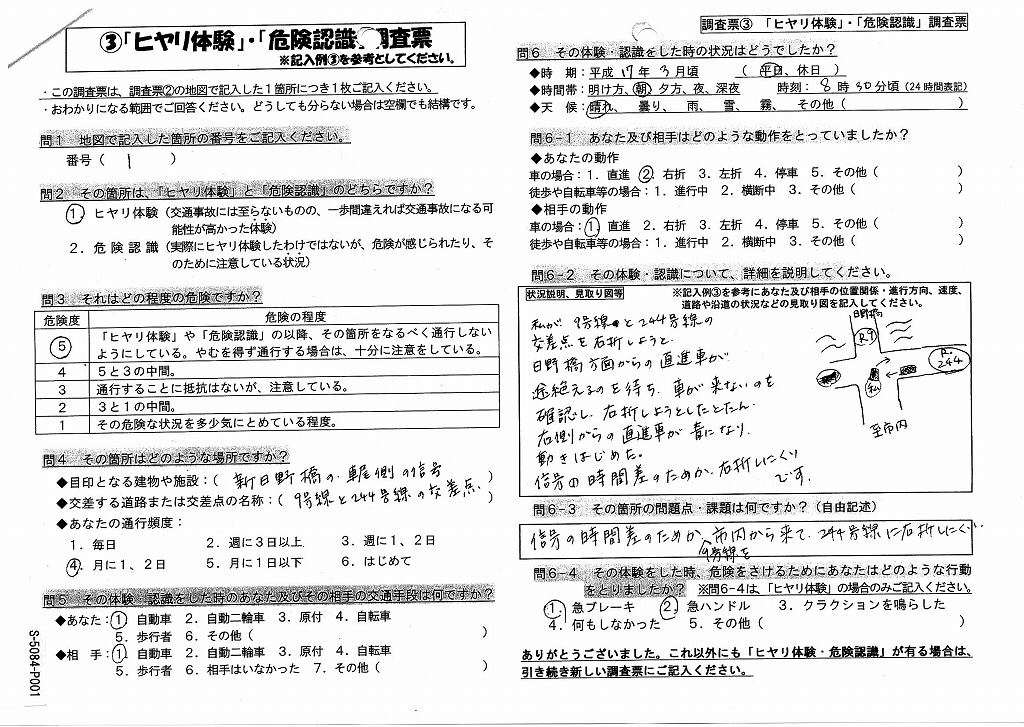 ③「ヒヤリ体験」・「危険認識」調査票
※記入例③を参考としてください。
・この調査票は、調査票②の地図で記入した１箇所につき１枚ご記入ください。
・おわかりになる範囲でご回答ください。どうしても分らない場合は空欄でも結構です。
問１　地図で記入した箇所の番号をご記入ください。
番号（　1　）
問２　その箇所は、「ヒヤリ体験」と「危険認識」のどちらですか？
１．ヒヤリ体験（交通事故には至らないものの、一歩間違えれば交通事故になる可
能性が高かった体験）
２．危険認識（実際にヒヤリ体験したわけではないが、危険が感じられたり、そ
のために注意している状況）
問３　それはどの程度の危険ですか？
危険度　危険の程度
５　「ヒヤリ体験」や「危険認識」の以降、その箇所をなるべく通行しない
ようにしている。やむを得ず通行する場合は、十分に注意をしている。
４　５と３の中間。
３　通行することに抵抗はないが、注意している。
２　３と１の中間。
１　その危険な状況を多少気にとめている程度。
問４　その箇所はどのような場所ですか？
◆目印となる建物や施設：（新日野橋の　側の信号　）
◆交差する道路または交差点の名称：（９号線と244号線の交差点　）
◆あなたの通行頻度：
１．毎日　２．週に３日以上　３．週に１、２日
４．月に１、２日　５．月に１日以下　６．はじめて
問５　その体験・認識をした時のあなた及びその相手の交通手段は何ですか？
◆あなた：１．自動車　２．自動二輪車　３．原付　４．自転車
５．歩行者　６．その他（　）
◆相　手：１．自動車　２．自動二輪車　３．原付　４．自転車
５．歩行者　６．相手はいなかった　７．その他（　）
S-5084-P001
調査票③　「ヒヤリ体験」・「危険認識」調査票
問６　その体験・認識をした時の状況はどうでしたか？
◆時　期：平成 17 年 3 月頃　（　平日、休日　）
◆時間帯：明け方、朝、夕方、夜、深夜　時刻：8 時 30 分頃（24時間表記）
◆天　候：晴れ、曇り、雨、雪、霧、その他（　）
問６-１　あなた及び相手はどのような動作をとっていましたか？
◆あなたの動作
車の場合：１．直進　２．右折　３．左折　４．停車　５．その他（　）
徒歩や自転車等の場合：１．進行中　２．横断中　３．その他（　）
◆相手の動作
車の場合：１．直進　２．右折　３．左折　４．停車　５．その他（　）
徒歩や自転車等の場合：１．進行中　２．横断中　３．その他（　）
問６-２　その体験・認識について、詳細を説明してください。
状況説明、見取り図等
※記入例③を参考にあなた及び相手の位置関係・進行方向、速度、
道路や沿道の状況などの見取り図を記入してください。
私が　9号線と244号線の
交差点を右折しようと、
日野橋方面からの直進車が
途絶えるのを待ち、車が来ないのを
確認し、右折しようとしたとたん、
右側からの直進車が青になり、
動きはじめた。
信号の時間差のためか、右折しにくい
です。
日野橋
R.9
R.244
私
至市内
問６-３　その箇所の問題点・課題は何ですか？（自由記述）
信号の時間差のためか、市内から来て、244号線に右折しにくい。
9号線を
問６-４　その体験をした時、危険をさけるためにあなたはどのような行動
をとりましたか？　※問6-4は「ヒヤリ体験」の場合のみご記入ください。
１．急ブレーキ　２．急ハンドル　３．クラクションを鳴らした
４．何もしなかった　５．その他（　）
ありがとうございました。これ以外にも「ヒヤリ体験・危険認識」が有る場合は、
引き続き新しい調査票にご記入ください。